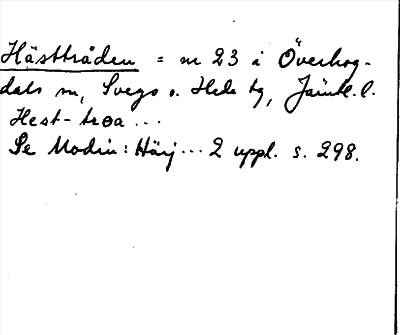 Hästtråden = nr 23 i Överhog-
dals sn, Svegs o. Hede tg, Jämtl. l.
Hest-troa ...
Se Modin: Härj... 2 uppl. s. 298.